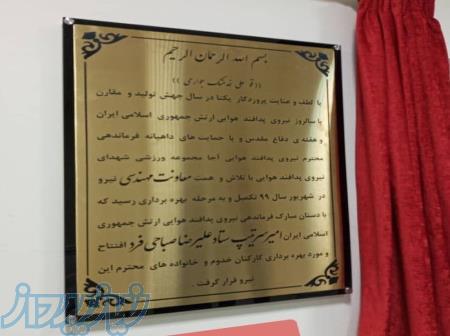 بسم الله الرحمان الرحیم
با لطف و عنایت پروردگار یکتا در سال جهش تولید و مقارن
با سالروز نیروی پدافند هوایی ارتش جمهوری اسلامی ایران
و هفته ی دفاع مقدس و با حمایت های داهیانه فرماندهی
محترم نیروی پدافند هوایی آجا مجموعه ورزشی شهدای
نیروی پدافند هوایی با تلاش و همت معاونت مهندسی نیرو
در شهریور سال ۹۹ تکمیل و به مرحله بهره برداری رسید که
با دستان مبارک فرماندهی نیروی پدافند هوایی ارتش جمهوری
اسلامی ایران امیر سرتیپ ستاد علیرضا صباحی فرد افتتاح
و مورد بهره برداری کارکنان خدوم و خانواده های محترم این
نیرو قرار گرفت .